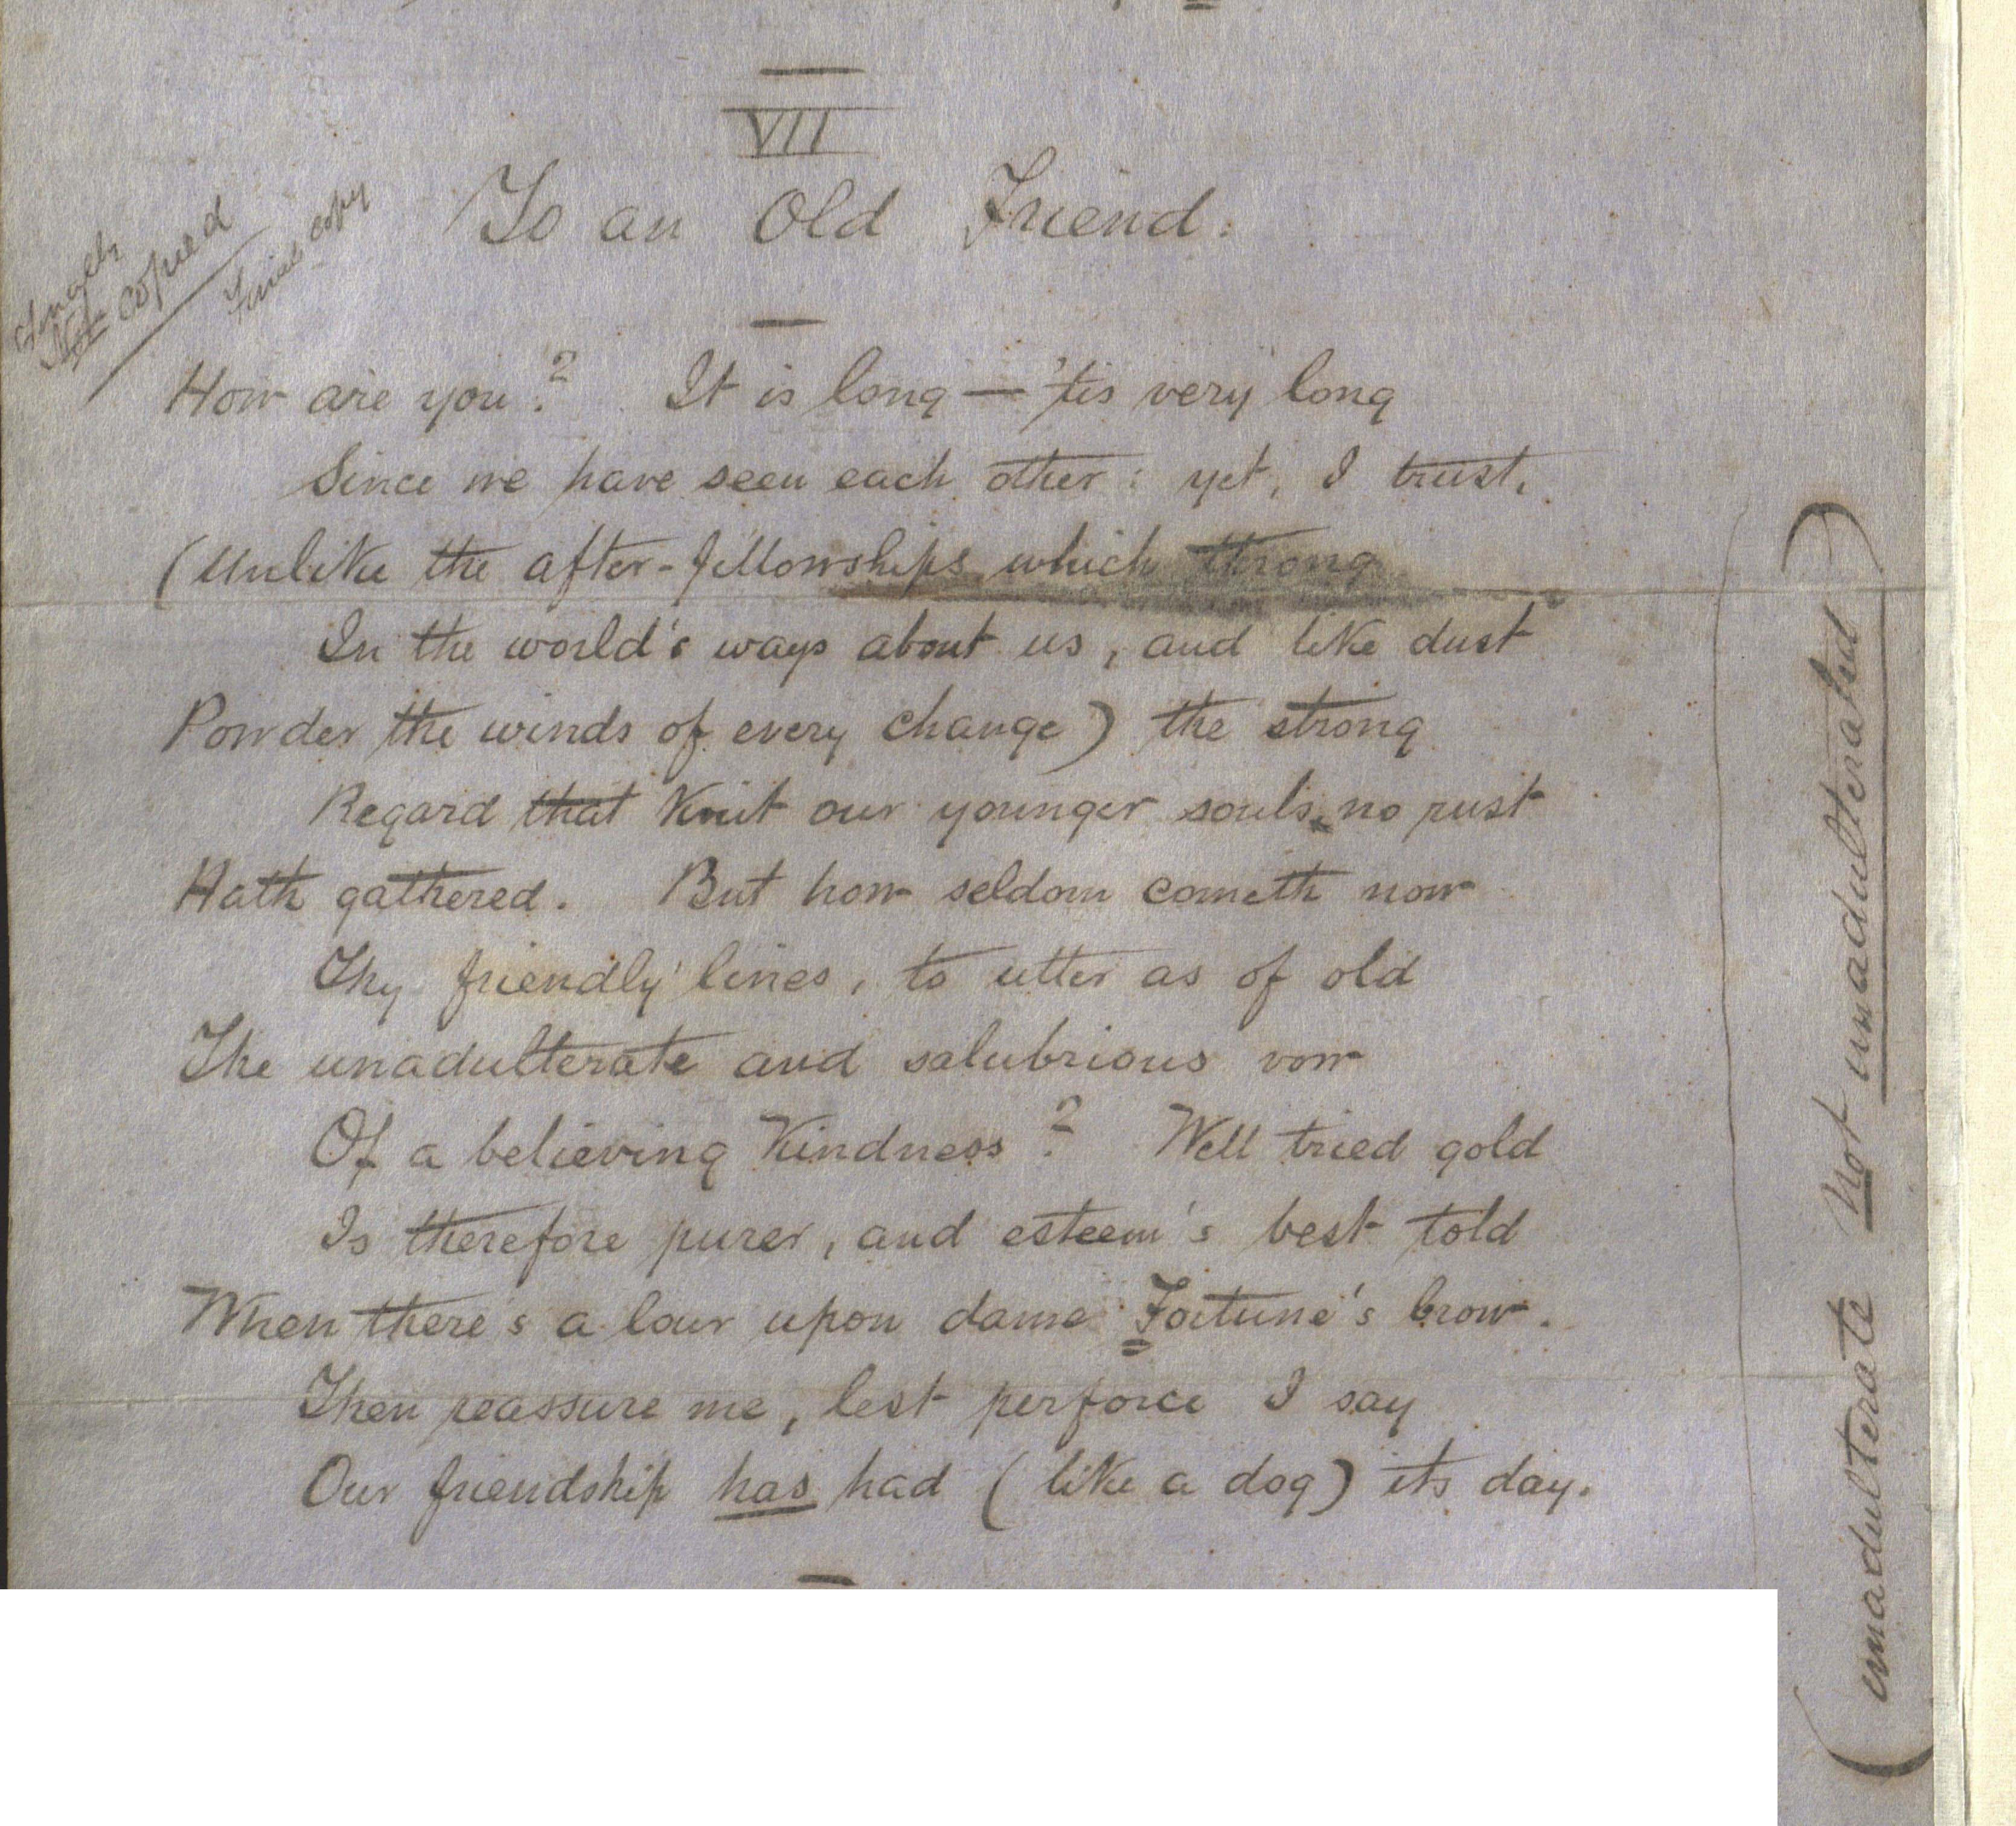 VII
To an Old Friend.
copied
Final copy
How are you? It is long — 'tis very long
Since we have seen each other: yet, I trust,
(Unlike the after-fellowships which throng
In the world's ways about us, and like dust
Powder the winds of every change) the strong
Regard that knit our younger souls, no rust
Hath gathered. But how seldom cometh now
Thy friendly lines, to utter as of old
The unadulterate and salubrious vow
Of a believing kindness? Well tried gold
Is therefore purer, and esteem's best told
When there's a lour upon dame Fortune's brow.
Then reassure me, lest perforce I say
Our friendship has had (like a dog) its day.
(unadulterate not unadulterated)